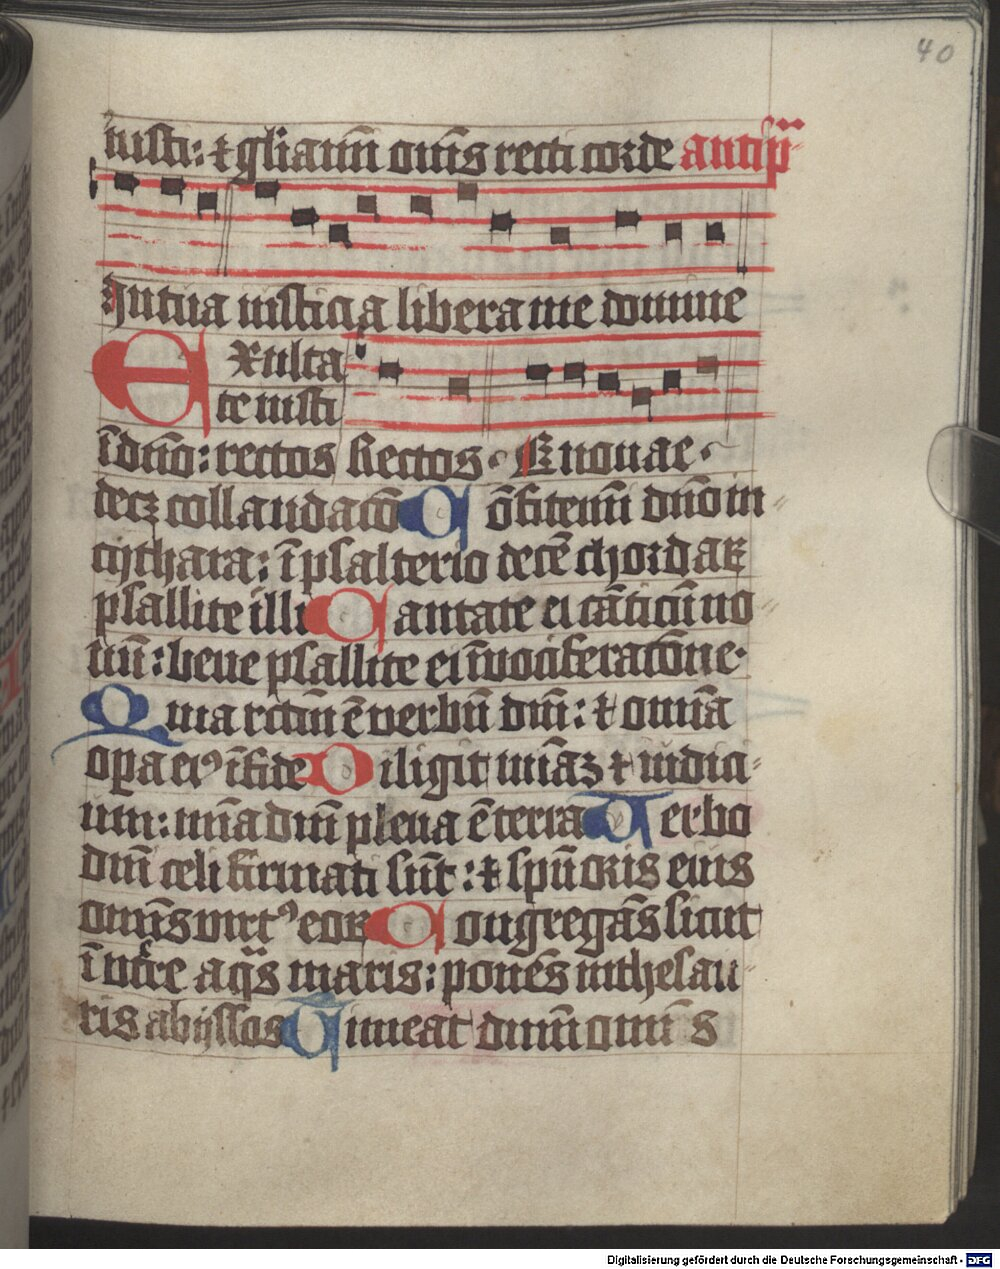 40
iusti: ⁊ gl̄iamī om̄s recti corde antip̄
In tua iusticia libera me domine
Exulta
te iusti
ī dn̄o: rectos Rectos · E u o u a e ·
decꝫ collaudacō Cōfitemī dn̄o in
cythara: ī psalterio decē chordaꝝ
psallite illi Cantate ei cāticū no
uū: bene psallite ei ī vociferacōne·
Quia rectū ē verbū dn̄i: ⁊ om̄ia
opa eiꝰ ī fide Diligit mīaꝫ ⁊ iudici
um: mīa dn̄i plena ē terra Verbo
dn̄i celi firmati sūt: ⁊ spū oris eius
om̄is virtꝰ eoꝝ Congregās sicut
ī vtre aq̄s maris: ponēs in thesau
ris abyssos Timeat dn̄m omīs
Digitalisierung gefördert durch die Deutsche Forschungsgemeinschaft - DFG